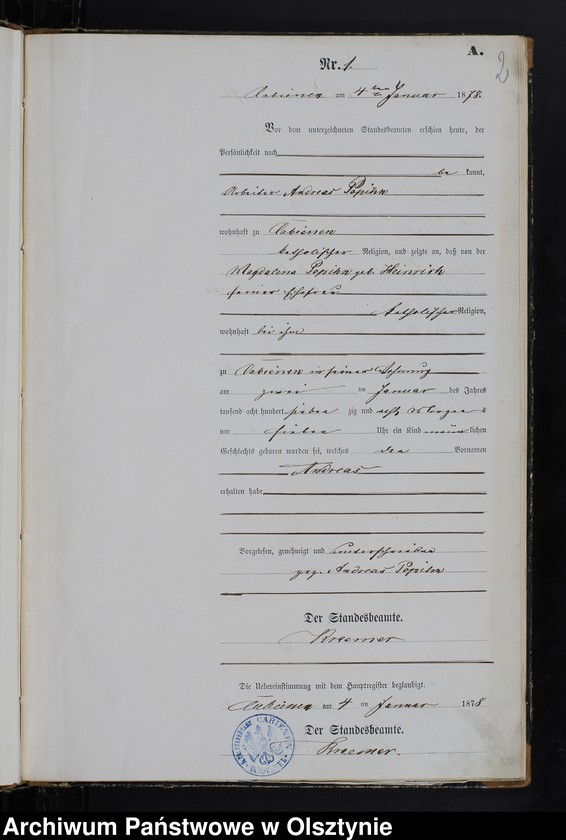 A.
2
Nr. 1.
Cabienen am 4ten Januar 1878.
Vor dem unterzeichneten Standesbeamten erschien heute, der
Persönlichkeit nach
be kannt,
Arbeiter Andreas
wohnhaft zu Cabienen
katholischer Religion, und zeigte an, daß von der
Magdalena geb. Heinrich
seiner Ehefrau
katholischer Religion,
wohnhaft bei ihm
zu Cabienen in seiner Wohnung
am zwei ten Januar des Jahres
tausend acht hundert sieben zig und acht Morgens
um sieben Uhr ein Kind männ lichen
Geschlechts geboren worden sei, welches den Vornamen
Andreas
erhalten habe
Vorgelesen, genehmigt und unterschrieben
gez. Andreas
Der Standesbeamte.
Kraemer
Die Uebereinstimmung mit dem Hauptregister beglaubigt.
Cabienen am 4 ten Januar 1878
Der Standesbeamte.
Kraemer.
CABIENEN
Archiwum Państwowe w Olsztynie